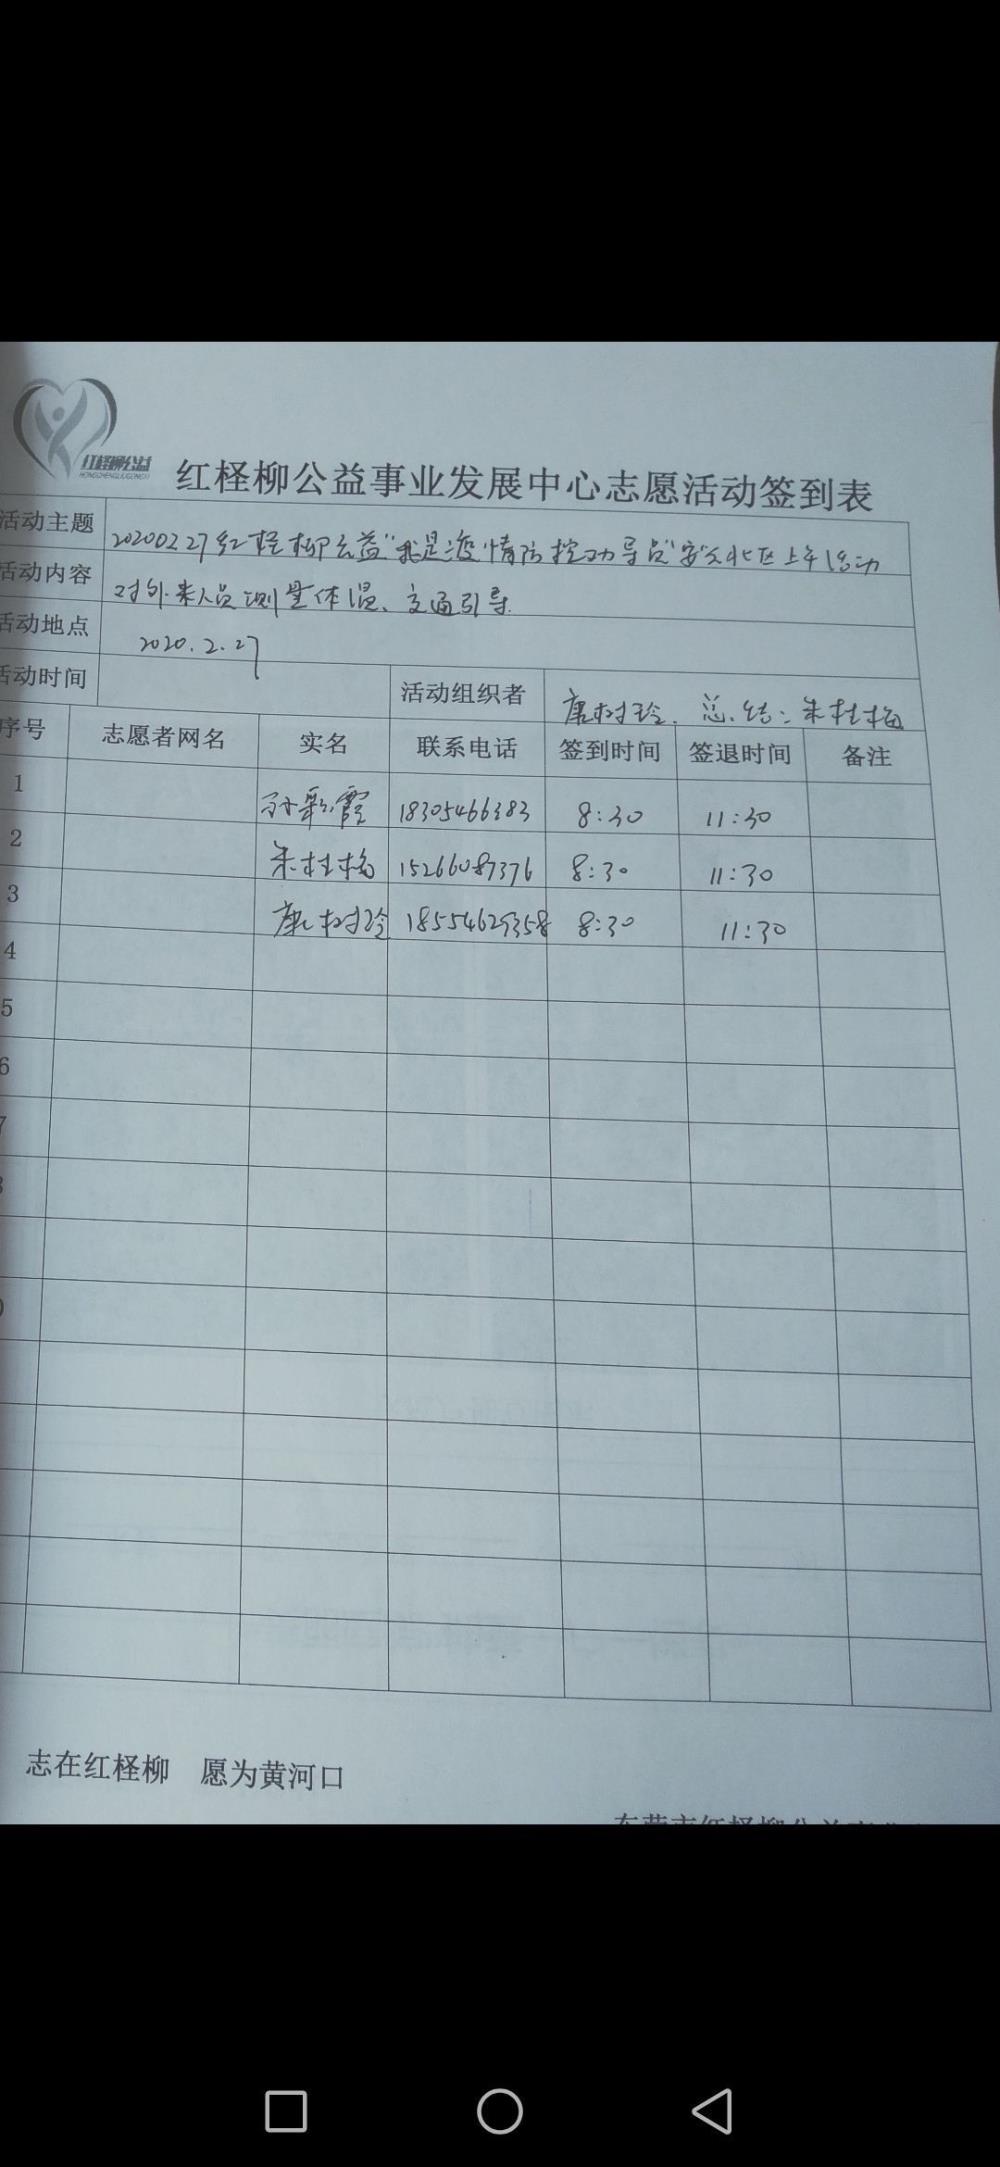 红柽柳公益
HONGCHENGLIUGONGYI
红柽柳公益事业发展中心志愿活动签到表
活动主题 20200227红柽柳公益"我是疫情防控劝导员"安久北区上午活动
活动内容 对外来人员测量体温、交通引导
活动地点 2020.2.27
活动时间 活动组织者 唐树玲. 总结:朱桂梅
序号 志愿者网名 实名 联系电话 签到时间 签退时间 备注
1 孙彩霞 18305466383 8:30 11:30
2 朱桂梅 15266087376 8:30 11:30
3 唐树玲 18554629358 8:30 11:30
4
5
6
7
8
志在红柽柳 愿为黄河口
东营市红柽柳公益事业